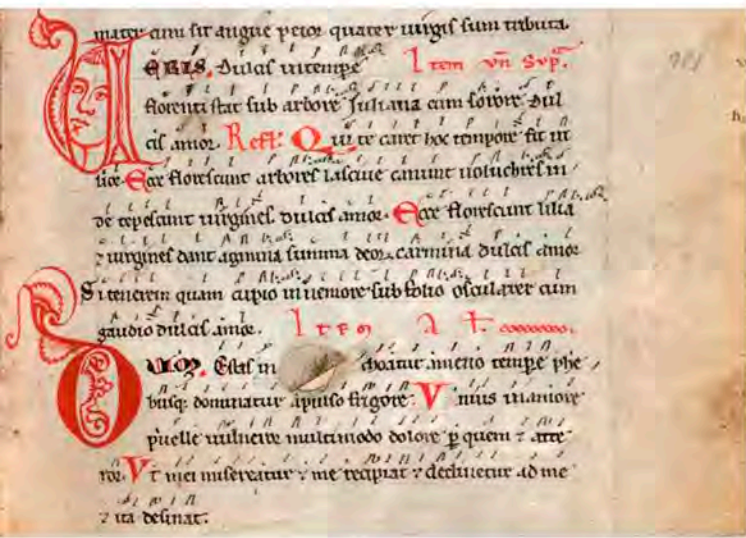 mater cum sit angue peior quater uirgis sum tributa.
VERIS. Dulcis intemp̱e Item vn Svp̃.
florenti stat sub arbore Iuliana cum sorore Dul
cis amor. Refl. Qui te caret hoc tempore fit ui
lior. Ecce florescunt arbores lasciue canunt uoluchres in
de tepescunt uirgines. dulcis amor. Ecce florescunt lilia
⁊ uirgines dant agmina summa deorꝝ carmina dulcis amor
Si tenerem quam cupio in nemore sub folio oscularer cum
gaudio dulcis amor. Item
DVM. Estas in choatur ameno temp̱e phe
busq; dominatur frigore. Vnius in amore
puelle uulneror multimodo dolore ꝑ quem ⁊ atte
ror. Vt mei misereatur ut me recipiat ⁊ declinetur ad me
⁊ ita desinat.